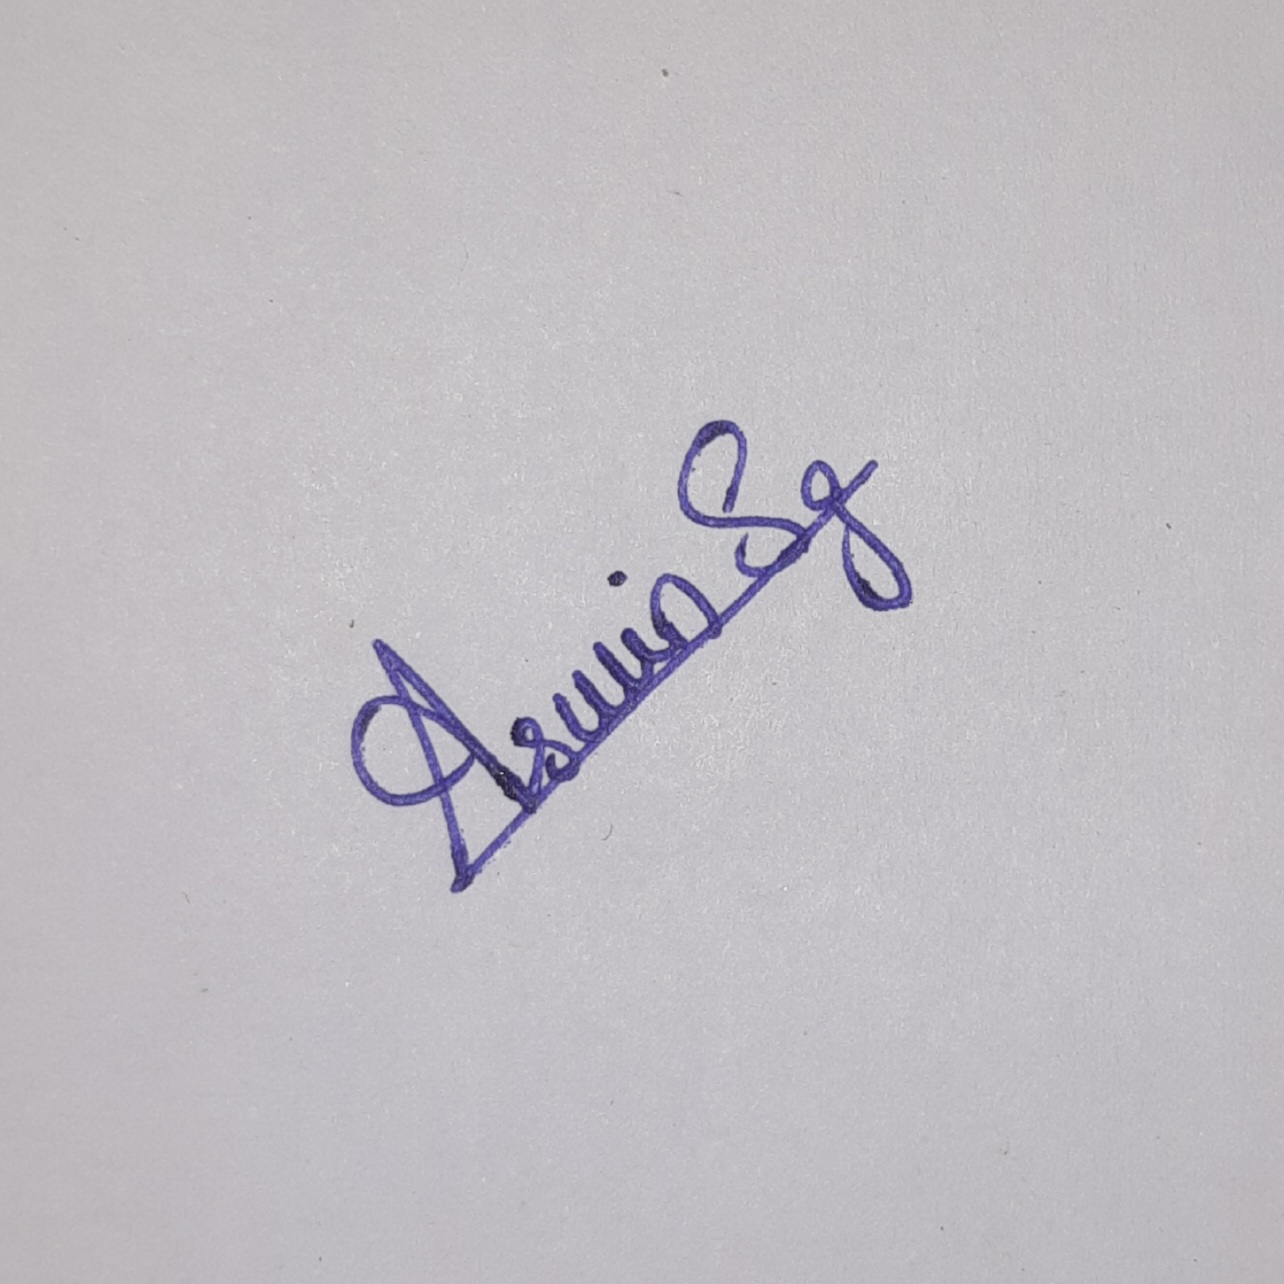 Aswin Sg